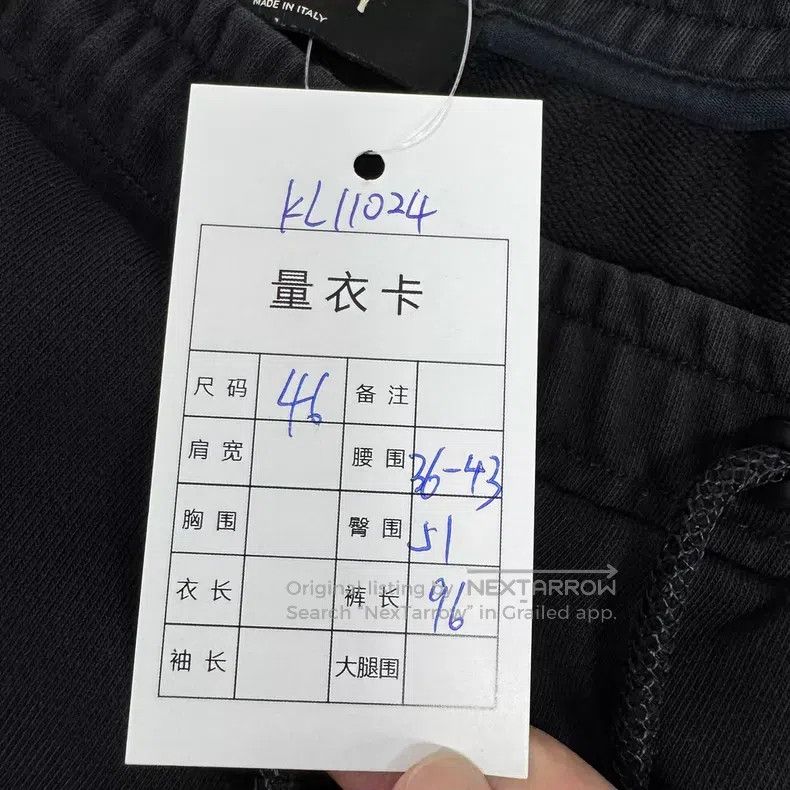 MADE IN ITALY
KL11024
量衣卡
尺码 46 备注
肩宽 腰围 36-43
胸围 臀围 51
衣长 裤长 96
袖长 大腿围
Original listing by NEXTARROW
Search "NexTarrow" in Grailed app.